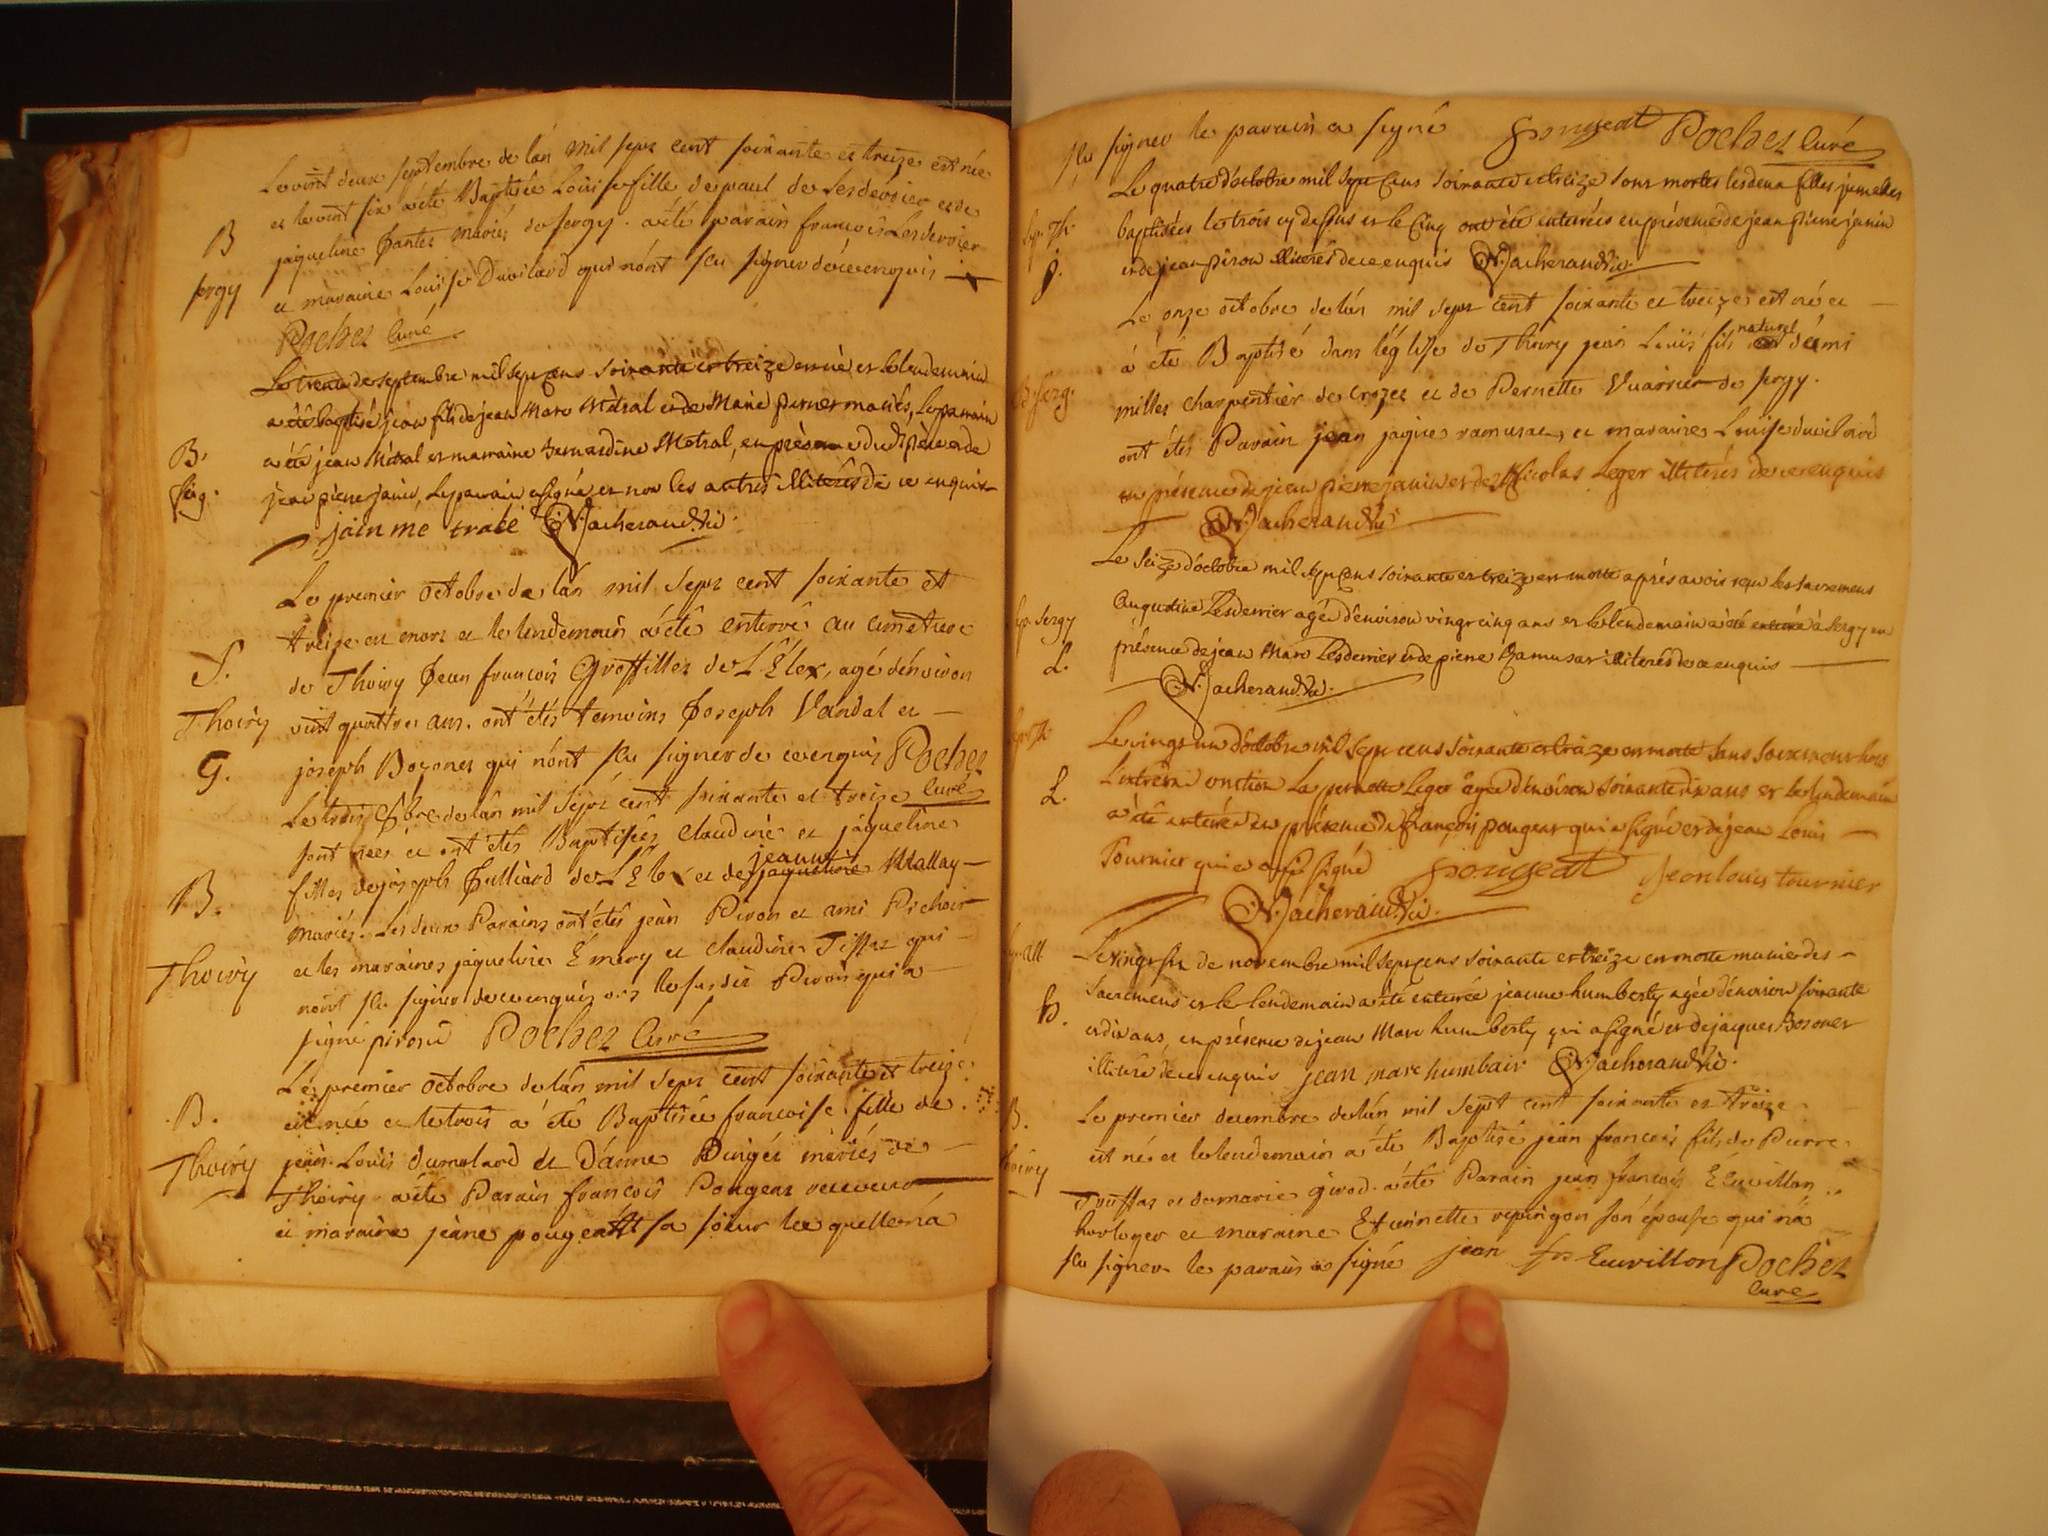 Le vint deux septembre de lán mil sept cent soixante et treize est née
et le vint six a été Baptisée Louise fille de paul de Lesderier et de
B
jaqueline mariés de sergy. a été parain francois Lesderier
sergy
et maraine Louise Duvilard qui nónt scu signer de ce enquis
Pochet Curé
Le trente de septembre mil sept cens soixante et treize est né et le lendemain
a été baptisé jean fils de jean Marc Métral et de Marie perner mariés, Le parrain
B.
a été jean Métral et marraine bernardine Metral, en présence dudt père et de
serg.
jean pierre janin, Le parain a signé et non les autres illiterés de ce enquis
jain mé tralé N. jacherand Vic.
Le premier octobre de lán mil sept cent soixante et
treize est mort et le lendemain a été enterré au cimetiere
S.
de Thoiry Jean francois Grosfillex de LElex, agé dénviron
Thoiry
vint quattre ans. ont étés temoins Joseph Vandal et
G.
joseph Bozonet qui nónt scu signer de ce enquis Pochet
Curé
Le trois 8bre de lán mil sept cent soixante et treize
sont nées et ont étés Baptisées Claudine et jaqueline
jeanne
filles de joseph Julliard de LElex et de jaqueline Mallay
B.
mariés. Les deux Parains ont étés jean Piron et ami Pichoir
Thoiry
et les maraines jaqueline Emery et claudine Tissot qui
nónt scu signer de ce enquis le susdit Piron qui a
signé piron Pochet Curé
Le premier octobre de lán mil sept cent soixante et treize
B.
est née et le trois a été Baptisée francoise fille de
Thoiry
jean Louis dumolard et Dánne Pingét mariés de
Thoiry a été Parain francois Pougeat receveur
et maraine jeane pougeatt sa soeur la quelle ná
scu signer le parain a signé pougeat Pochet Curé
Le quatre d'octobre mil sept Cens soixante et treize sont mortes les deux filles jumelles
Sep. Th.
baptisées le trois cy dessus et le Cinq ont été enterrées en présence de jean pierre janin
J.
et de jean piron illiterés de ce enquis N. jacherand Vic.
Le onze octobre de lán mil sept cent soixante et treize est né et
naturel
a été Baptisé dans léglise de Thoiry jean Louis fils dámi
B. serg.
millet charpentier de crozet et de Pernette Vuarrier de sergy.
ont étés Parain jean jaques ramusat, et maraine Louise duvilard
en présence de jean pierre janin et de Nicolas Leger illiterés de ce enquis
N. jacherand Vic.
Le seize d'octobre mil sept Cens soixante et treize est morte aprés avoir reçu les sacremens
Sep. sergy
Augustine Lesderrier agée d'environ vingt cinq ans et le lendemain a été enterrée à sergy en
L.
présence de jean Marc Lesderrier et de pierre Ramusat illiterés de ce enquis
N. jacherand Vic.
Sep. Th.
Le vingt un d'octobre mil sept cens soixante et treize est morte sans sacremens hors
L.
l'extrême onction La pernette Leger agée d'environ soixante dix ans et le lendemain
a été enterrée en présence de françois pougeat qui a signé et de jean Louis
Tournier qui a aussi signé pougeat jean louis tournier
N. jacherand Vic.
Le vingt six de novembre mil sept cens soixante et treize est morte munie des
sacremens et le lendemain a été enterrée jeanne humberty agée d'environ soixante
h.
et dix ans, en présence de jean Marc humberty qui a signé et de jaques Bozonet
illiteré de ce enquis jean marc humbair N. jacherand Vic.
B.
Le premier decembre de lán mil sept cent soixante et treize
est né et le lendemain a été Baptisé jean francois fils de Pierre
Thoiry
Truffat et de marie girod. a été Parain jean francois Euvillon
horloger et maraine Etiennette repingon són épouse qui ná
scu signer le parain a signé jean frs Euvillon Pochet
Curé